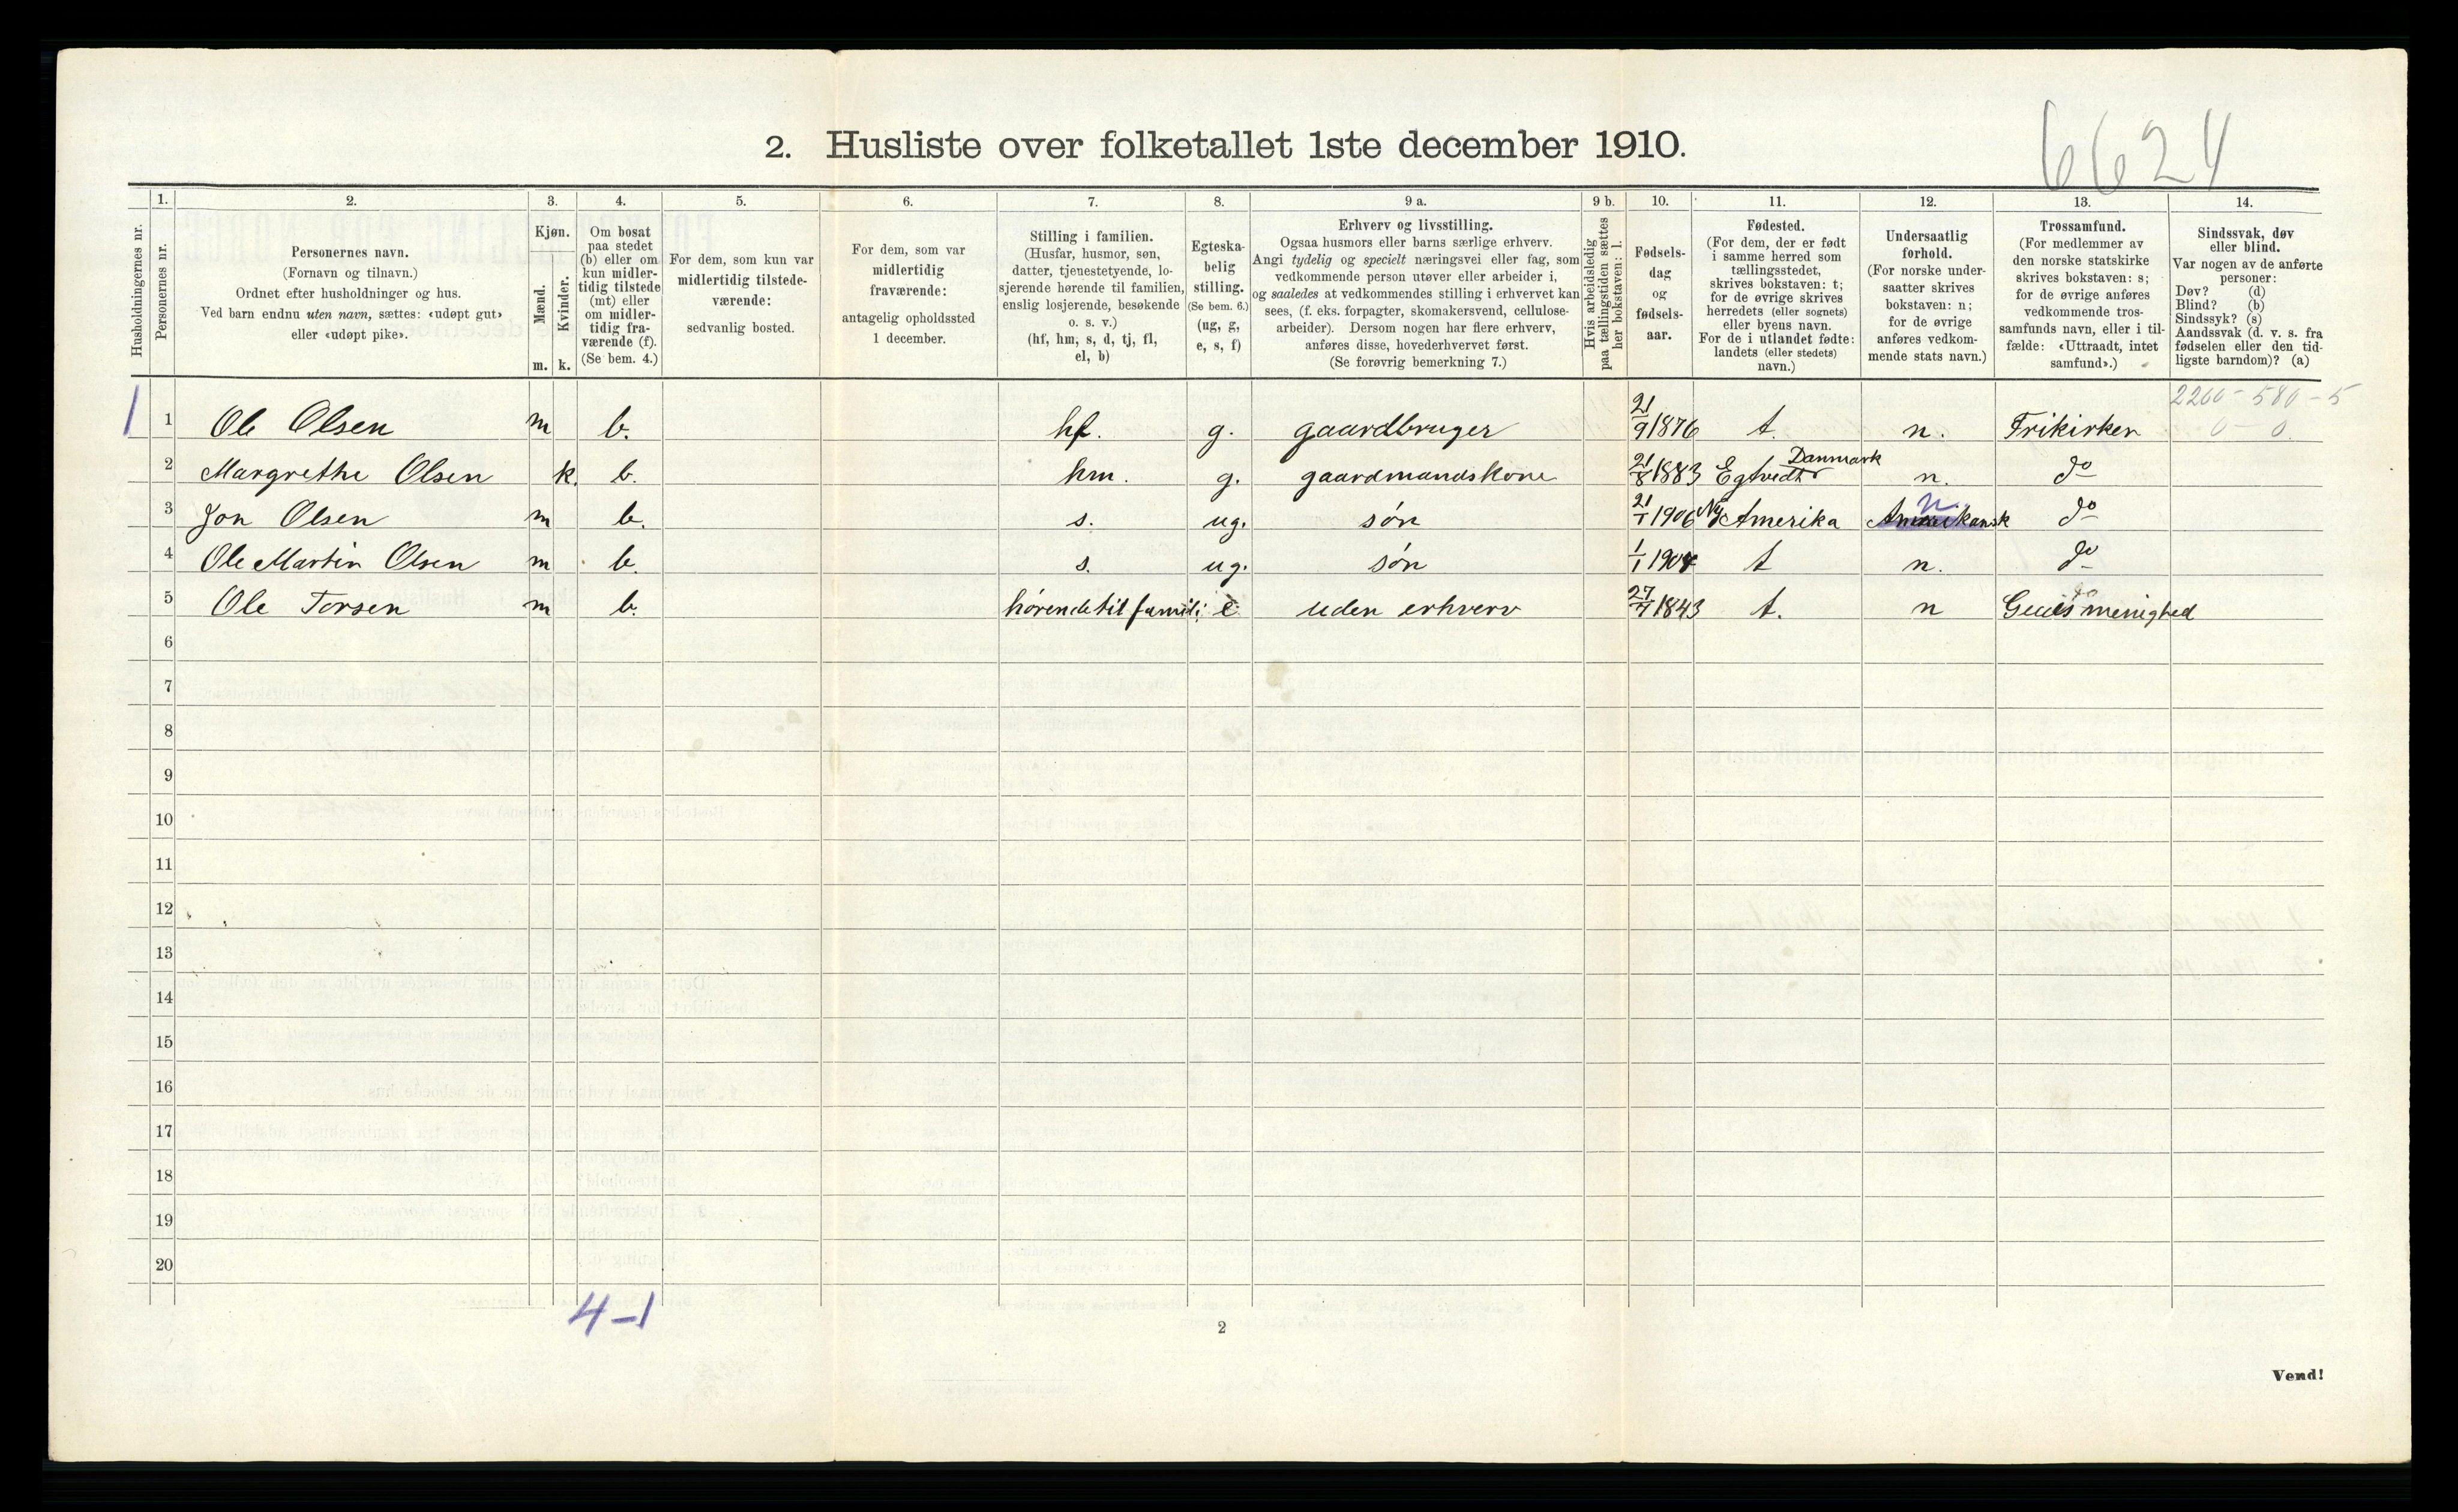 6624
2. Husliste over folketallet 1ste december 1910.
Husholdningernes nr.
1. Personernes nr.
2. Personernes navn.
(Fornavn og tilnavn.)
Ordnet efter husholdninger og hus.
Ved barn endnu uten navn, sættes: «udøpt gut»
eller «udøpt pike».
3. Kjøn.
Mænd. m.
Kvinder. k.
4. Om bosat
paa stedet
(b) eller om
kun midler-
tidig tilstede
(mt) eller
om midler-
tidig fra-
værende (f).
(Se bem. 4.)
5. For dem, som kun var
midlertidig tilstede-
værende:
sedvanlig bosted.
6. For dem, som var
midlertidig
fraværende:
antagelig opholdssted
1 december.
7. Stilling i familien.
(Husfar, husmor, søn,
datter, tjenestetyende, lo-
sjerende hørende til familien,
enslig losjerende, besøkende
o. s. v.)
(hf, hm, s, d, tj, fl,
el, b)
8. Egteska-
belig
stilling.
(Se bem. 6.)
(ug, g,
e, s, f)
9 a. Erhverv og livsstilling.
Ogsaa husmors eller barns særlige erhverv.
Angi tydelig og specielt næringsvei eller fag, som
vedkommende person utøver eller arbeider i,
og saaledes at vedkommendes stilling i erhvervet kan
sees, (f. eks. forpagter, skomakersvend, cellulose-
arbeider). Dersom nogen har flere erhverv,
anføres disse, hovederhvervet først.
(Se forøvrig bemerkning 7.)
9 b. Hvis arbeidsledig
paa tællingstiden sættes
her bokstaven: l.
10. Fødsels-
dag
og
fødsels-
aar.
11. Fødested.
(For dem, der er født
i samme herred som
tællingsstedet,
skrives bokstaven: t;
for de øvrige skrives
herredets (eller sognets)
eller byens navn.
For de i utlandet fødte:
landets (eller stedets)
navn.)
12. Undersaatlig
forhold.
(For norske under-
saatter skrives
bokstaven: n;
for de øvrige
anføres vedkom-
mende stats navn.)
13. Trossamfund.
(For medlemmer av
den norske statskirke
skrives bokstaven: s;
for de øvrige anføres
vedkommende tros-
samfunds navn, eller i til-
fælde: «Uttraadt, intet
samfund».)
14. Sindssvak, døv
eller blind.
Var nogen av de anførte
personer:
Døv? (d)
Blind? (b)
Sindssyk? (s)
Aandssvak (d. v. s. fra
fødselen eller den tid-
ligste barndom)? (a)
2200 - 580 - 5
1 1 Ole Olsen m b. hf. g. gaardbruger 21/9 1876 t. n. Frikirken 0 - 0
2 Margrethe Olsen k. b. hm. g. gaardmandskone 21/8 1883 Egtvedt Danmark n. do
3 Jon Olsen m b. s. ug. søn 21/1 1906 Ny Amerika Amerikansk n. do
4 Ole Martin Olsen m b. s. ug. søn 1/1 1908 t n. do
5 Ole Torsen m b. hørende til famili: e uden erhverv 27/7 1843 t. n menighed
6
7
8
9
10
11
12
13
14
15
16
17
18
19
20
4-1
2
Vend!